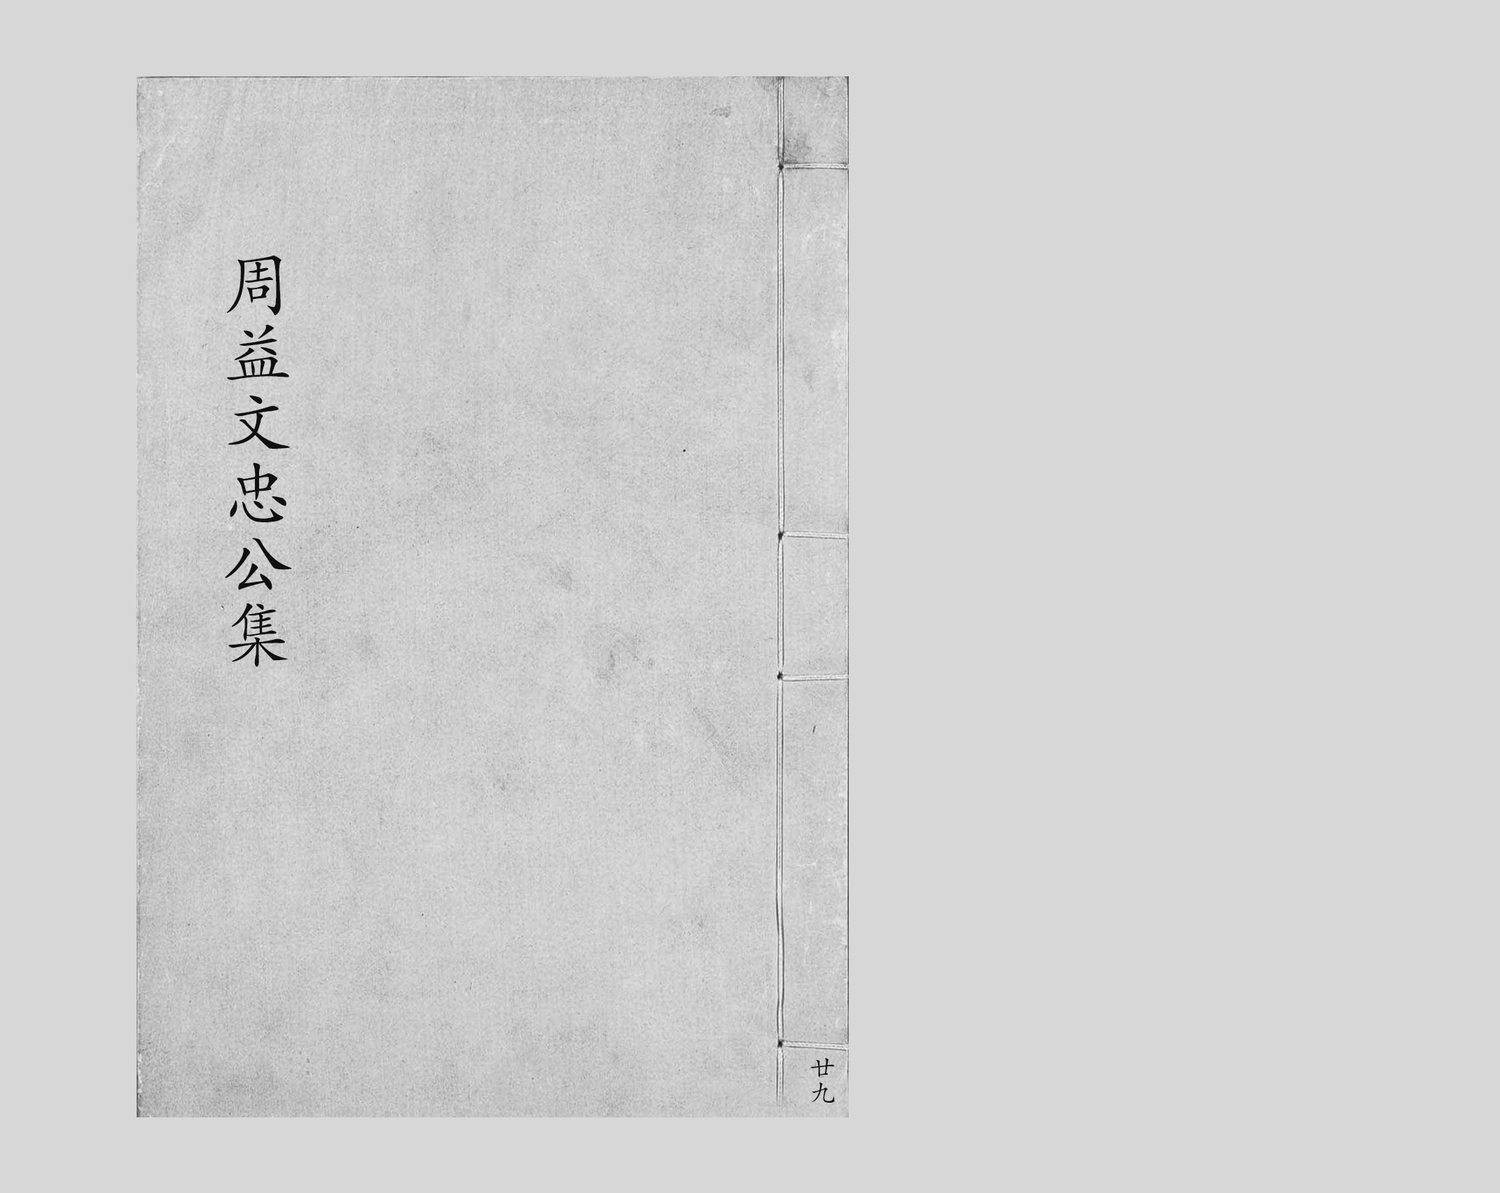 周益文忠公集
廿九